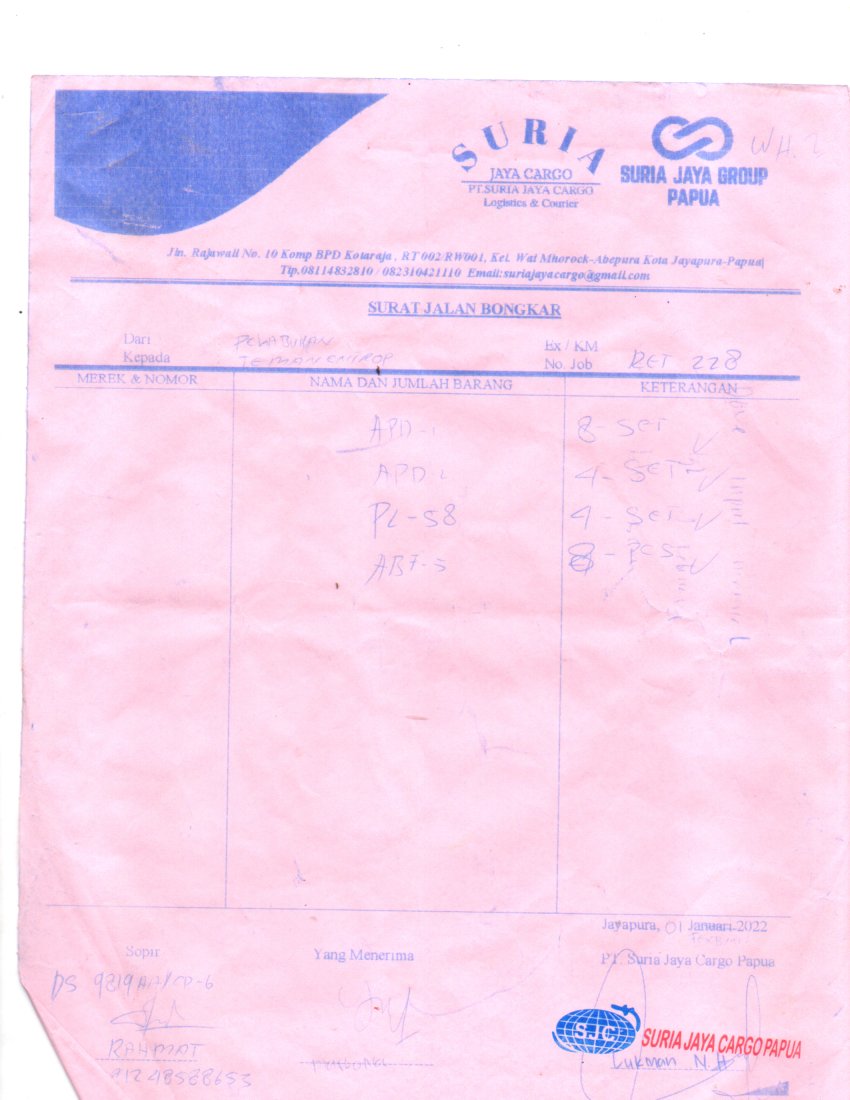 SURIA
JAYA CARGO
PT.SURIA JAYA CARGO
Logistics & Courier
SURIA JAYA GROUP
PAPUA
WH. 2
Jln. Rajawali No. 10 Komp BPD Kotaraja , RT 002/RW001, Kel. Wai Mhorock-Abepura Kota Jayapura-Papua
Tlp.08114832810 / 082310421110 Email:suriajayacargo@gmail.com
SURAT JALAN BONGKAR
Dari PELABUHAN Ex / KM
Kepada No. Job RET 228
MEREK & NOMOR NAMA DAN JUMLAH BARANG KETERANGAN
APD-1 8 - SET
APD-2 4 - SET
PL-58 4 - SET
8 - PCS
Jayapura, 01 Januari 2022
Sopir Yang Menerima PT. Suria Jaya Cargo Papua
DS 9819
SJC
SURIA JAYA CARGO PAPUA
RAHMAT
Lukman N.H